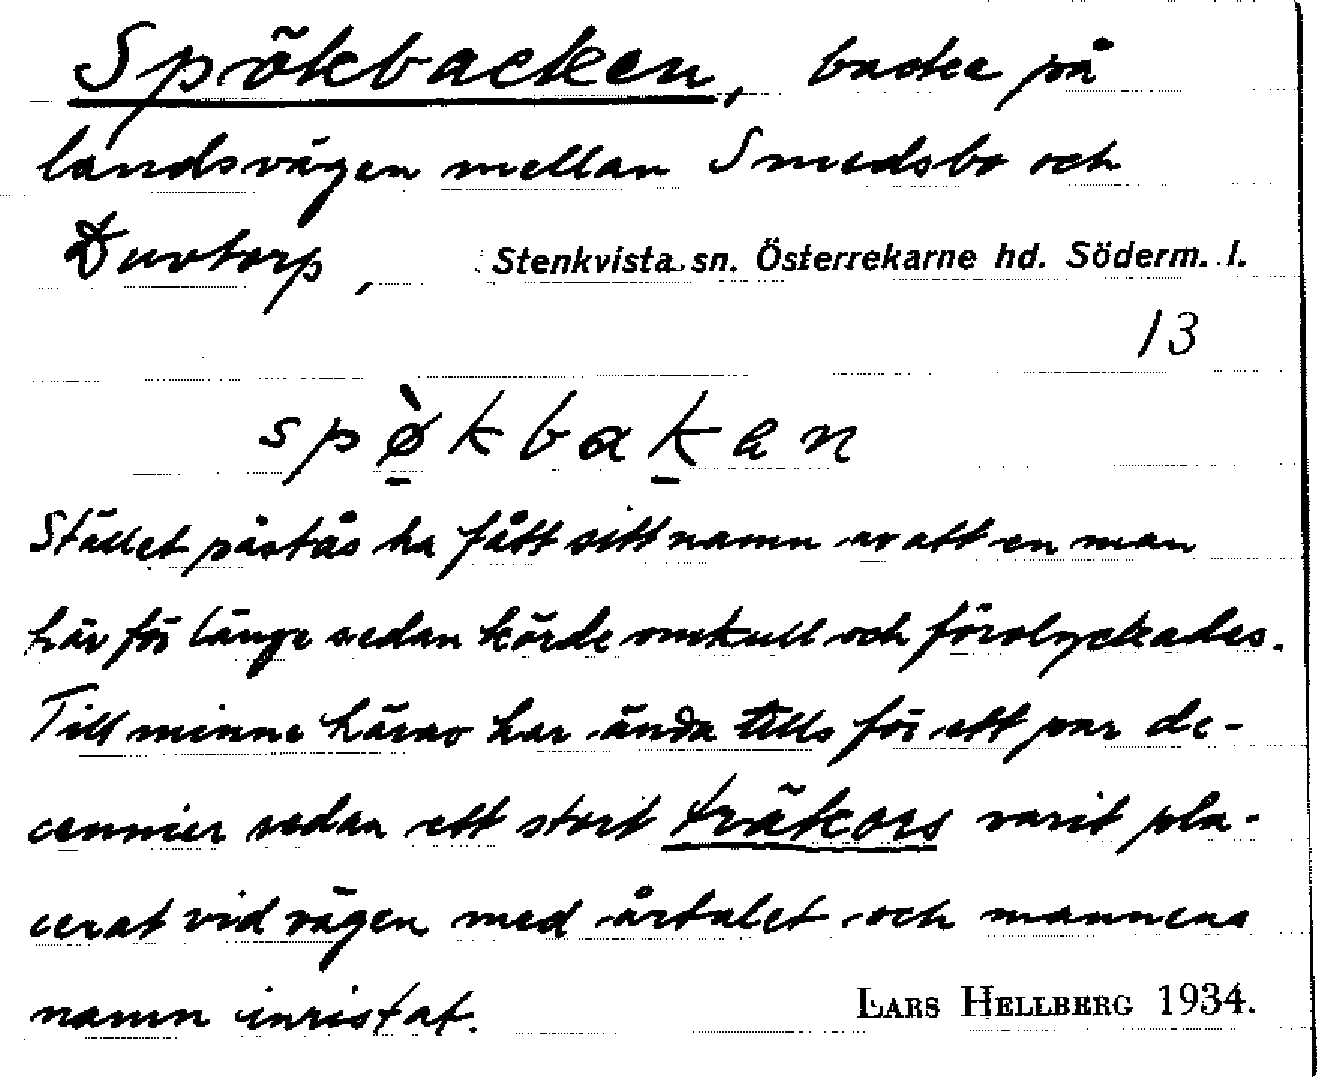 Spökbacken, backe på
landsvägen mellan Smedsbo och
Duvtorp, Stenkvista sn. Österrekarne hd. Söderm. l.
13
spø̀kbakan
Stället påstås ha fått sitt namn av att en man
här för länge sedan körde omkull och förolyckades.
Till minne härav har ända tills för ett par de-
cennier sedan ett stort träkors varit pla-
cerat vid vägen med årtalet och mannens
namn inristat. LARS HELLBERG 1934.